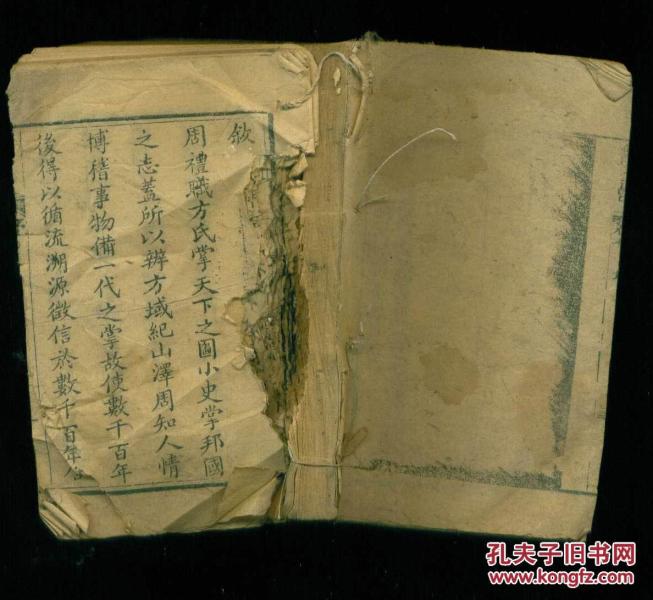 敘
周禮職方氏掌天下之圖小史掌邦國
之志蓋所以辦方域紀山澤周知人情
博稽事物備一代之掌故使數千百年
後得以循流溯源徵信於數千百年
孔夫子旧书网
www.kongfz.com